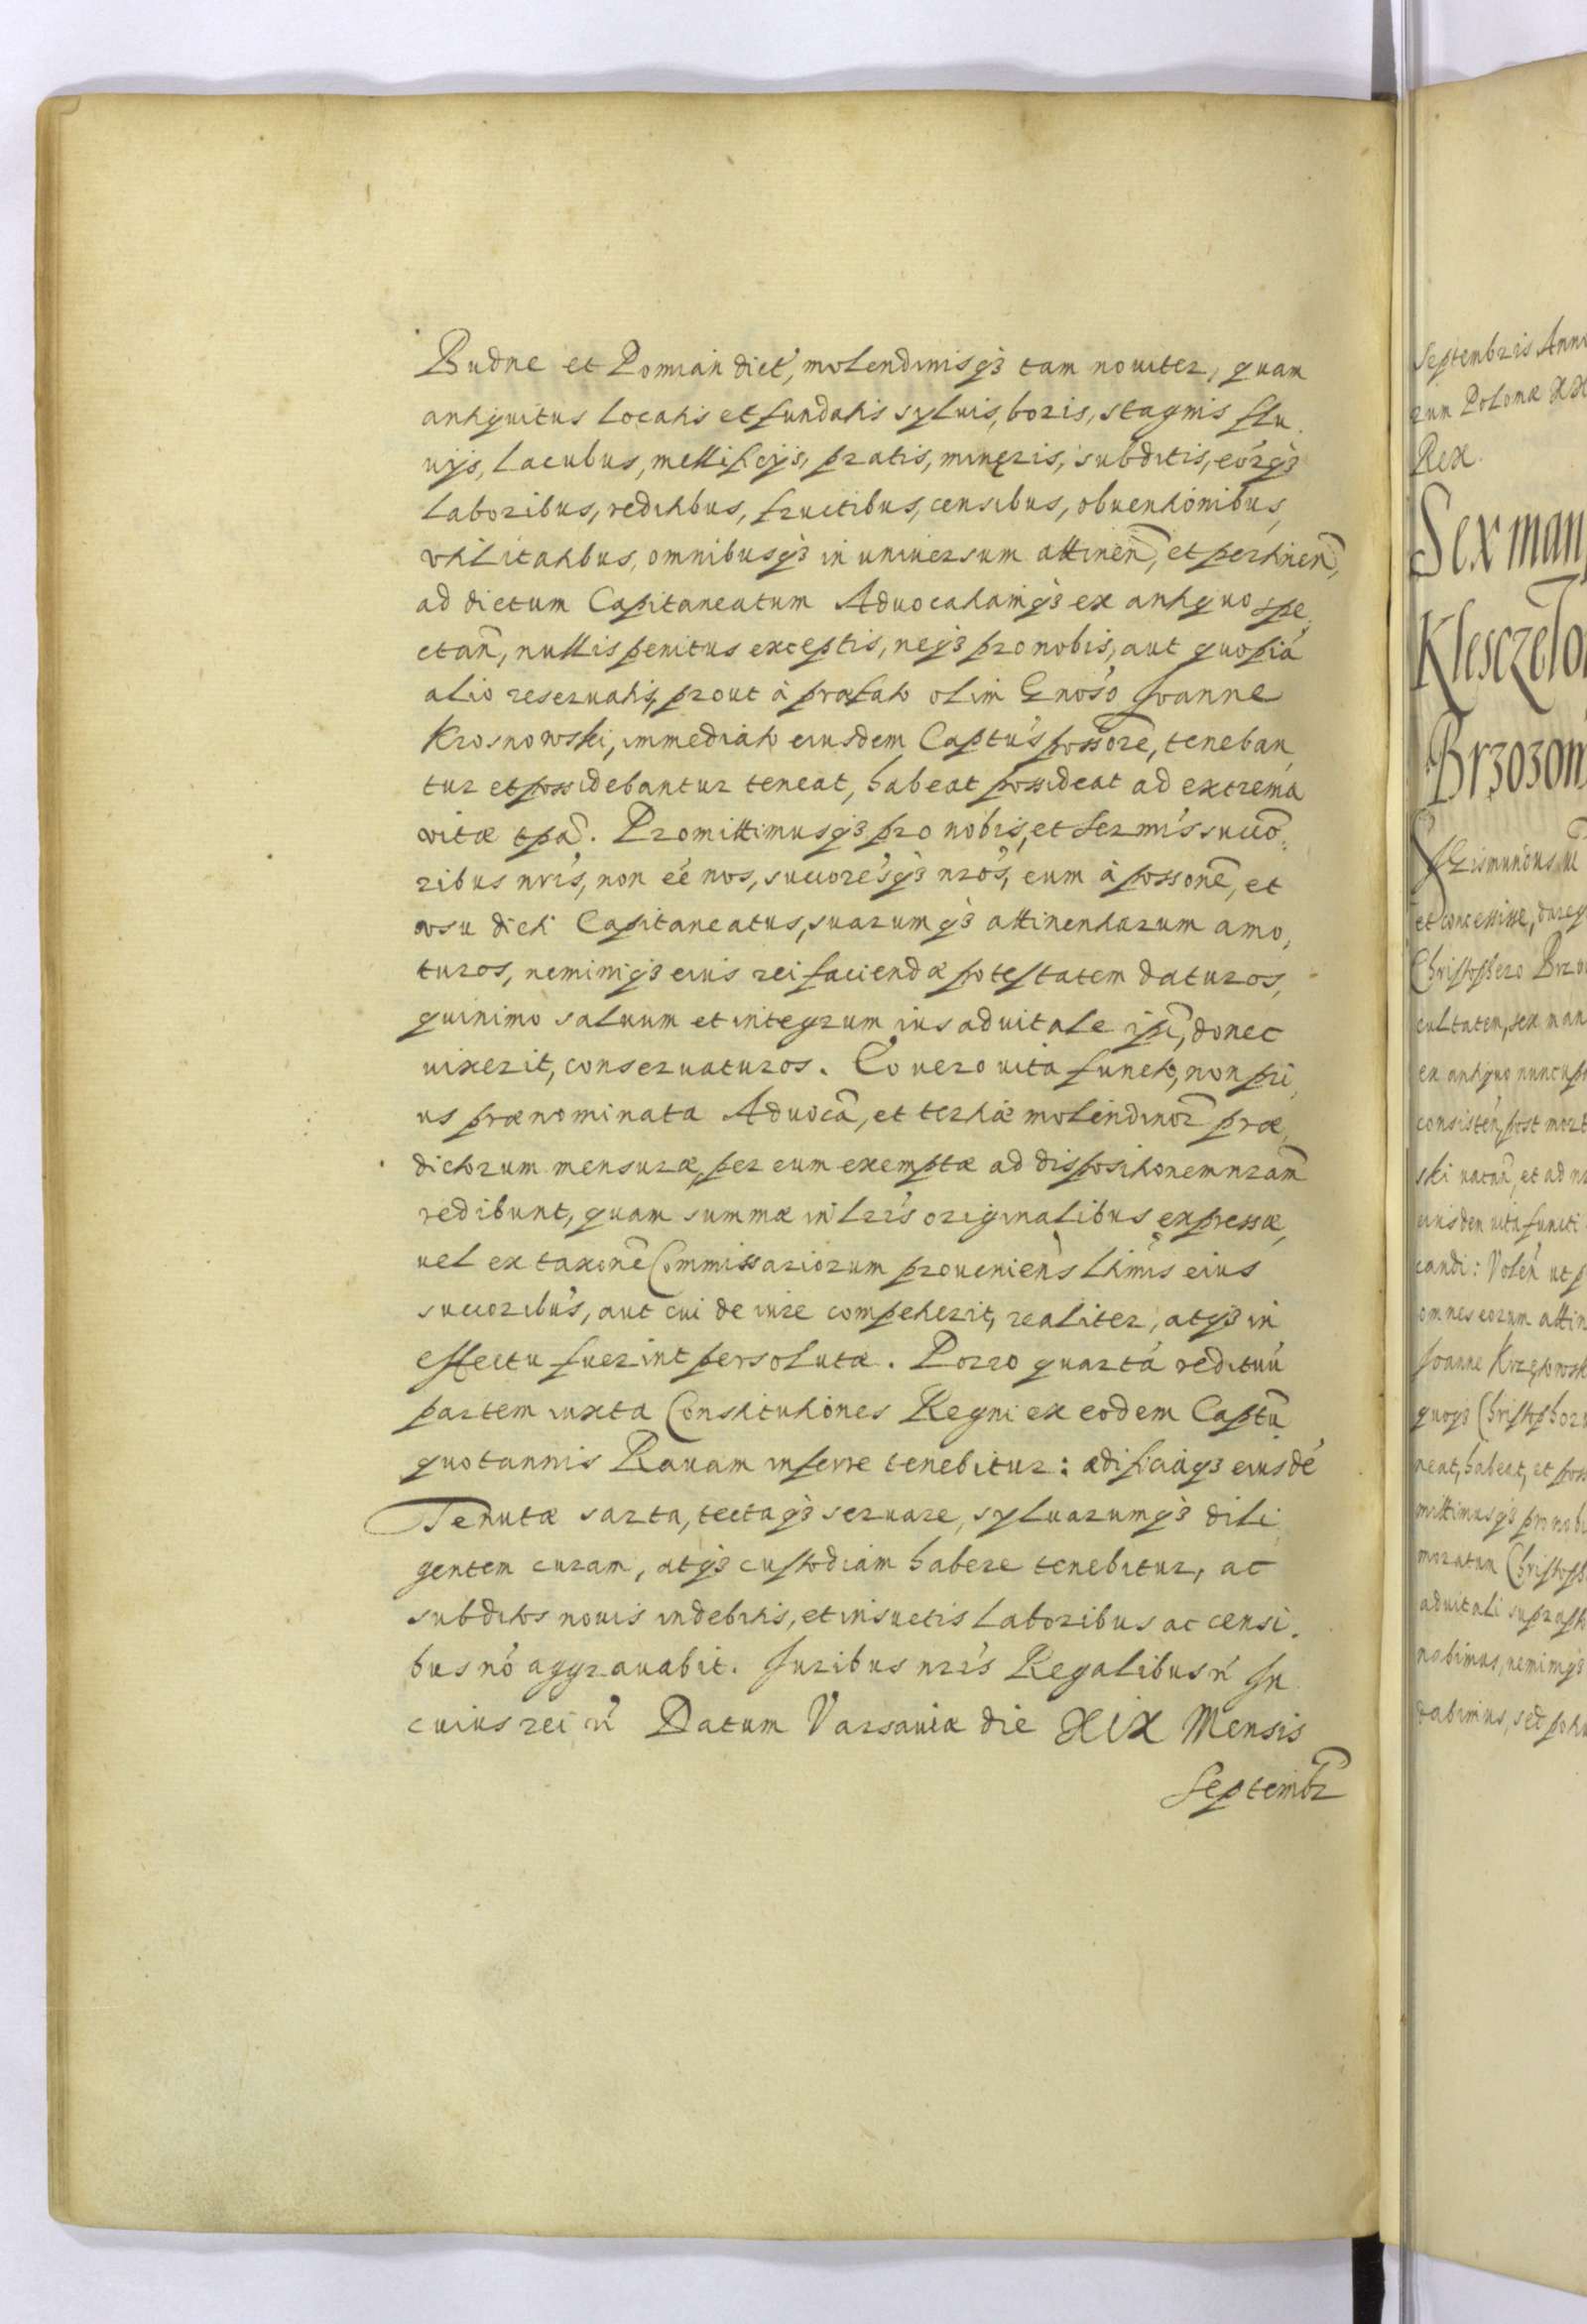 Budne et Pomian dict', molendinisq3 tam nouiter, quam
antiquitus locatis et fundatis syluis, boris, stagnis flu,
uijs, lacubus, mellificijs, pratis, mineris, subditis, eorq3
laboribus, reditibus, fructibus, censibus, obuentionibus,
vtilitatibus, omnibusq3 in uniuersum attinen, et pertinen,
ad dictum Capitaneatum Aduocatiamq3 ex antiquo spe,
ctan, nullis penitus exceptis, neq3 pro nobis, aut quopiá
alio reseruatis, prout à præfato olim Gnoso Joanne
Krosnowski, immediato eiusdem Captus possore, teneban,
tur et possidebantur teneat, habeat possideat ad extrema
vitæ tpa. Promittimusq3 pro nobis, et Sermis succo,
ribus nris, non éé nos, succoresq3 nros, eum à possone, et
vsu dicti Capitaneatus, suarumq3 attinentiarum amo,
turos, neminiq3 eius rei faciendæ potestatem daturos,
quinimo saluum et integrum ius aduitale ipi, donec
uixerit, conseruaturos. Eo uero uita functo, non pri,
us prænominata Aduoca, et tertiæ molendinor præ,
dictorum mensuræ, per eum exemptæ ad dispositionem nram
redibunt, quam summæ in lris originalibus expressæ,
uel ex taxone Commissariorum prouenien's ltimis eius
succoribus, aut cui de iure competierit, realiter, atq3 in
effectu fuerint persolutæ. Porro quartá redituú
partem iuxta Constitutiones Regni ex eodem Captu
quotannis Rauam inferre tenebitur: ædificiaq3 eiusdé
Tenutæ sarta, tectaq3 seruare, syluarumq3 dili,
gentem curam, atq3 custodiam habere tenebitur, ac
subditos nouis indebitis, et insuetis laboribus ac censi,
bus nó aggrauabit. Juribus nris Regalibus ń In
cuius rei ń Datum Varsauiæ die XIX Mensis
Septembr
Septembris Anno
rum Poloniæ XX
Rex.
Sex man
Klesczelo
Brzozow
Sigismundus
et concessisse, dareq
Christophero Brzo
cultatem, sex man
ex antiquo nuncup
consisten, post mort
ski uacan, et ad n
eiusdem uita functi
candi: Volen ut p
omnes eorum attin
Joanne
quoq3 Christophor
neat, habeat, et pos
mittimusq3 pro nobi
moratum Christoph
aduitali suprascr
nabimus, neminiq3
dabimus, sed poti